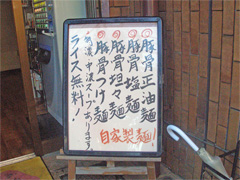 豚骨正油麺
豚骨塩麺
豚骨坦々麺
豚骨つけ麺
ライス無料！
自家製麺！